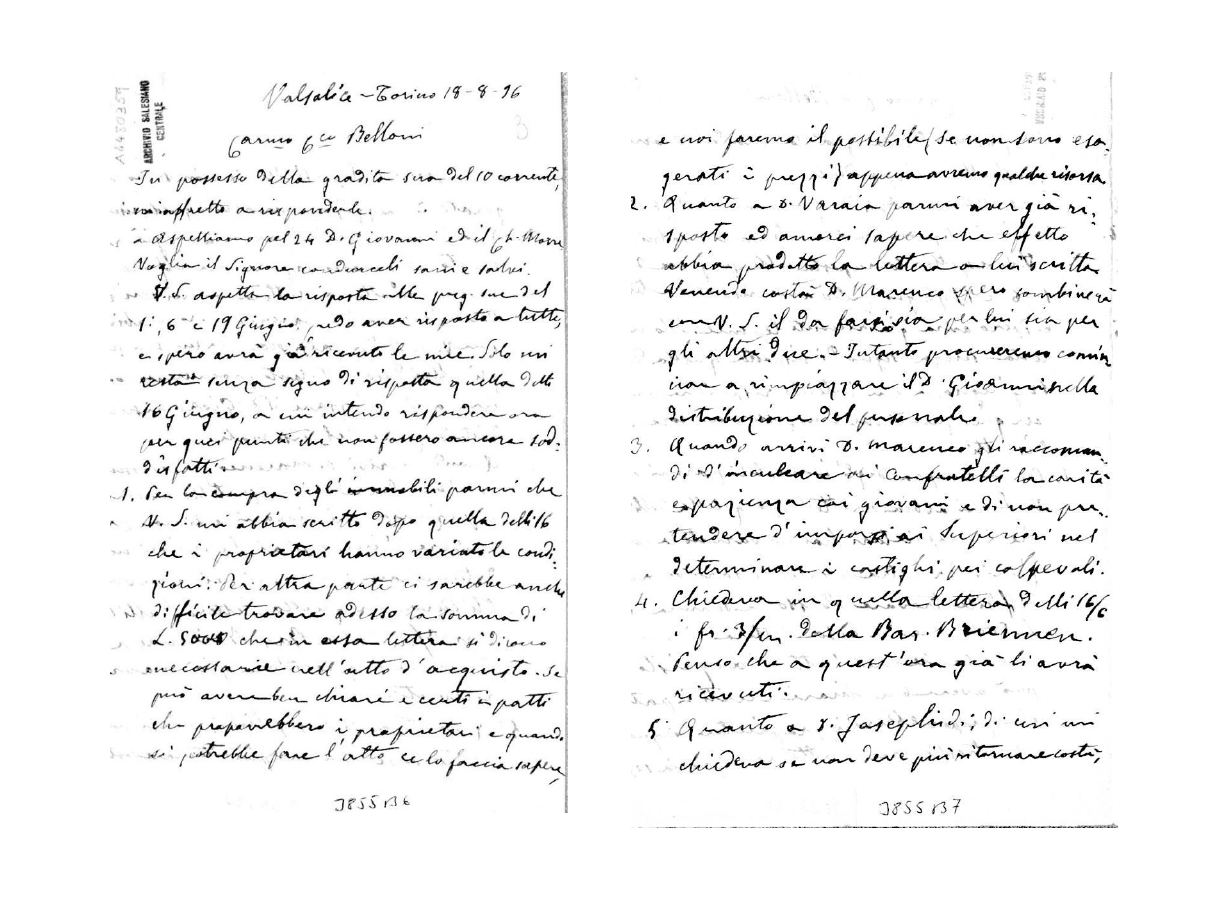 A4480359
ARCHIVIO SALESIANO
CENTRALE
Valsalice - Torino 18-8-96
3
Carmo Cco Belloni
In possesso della gradita sua del 10 corrente,
mi affretto a risponderle.
Aspettiamo pel 24 D. Giovanni ed il Ch.
Voglia il Signore condurceli sani e salvi.
V. S. aspetta la risposta alle preg. sue del
1, 6 e 19 Giugno. Credo aver risposto a tutte,
e spero avrà già ricevuto le mie. Solo mi
resta senza segno di risposta quella delli
16 Giugno, a cui intendo rispondere ora
per quei punti che non fossero ancora sod-
disfatti.
1. Per la compra degli immobili parmi che
V. S. mi abbia scritto dopo quella delli 16
che i proprietari hanno variato le condi-
zioni. Per altra parte ci sarebbe anche
difficile trovare adesso la somma di
L. 5000 che in essa lettera si dicono
necessarie nell'atto d'acquisto. Se
può avere ben chiari e certi i patti
che preparerebbero i proprietari e quando
si potrebbe fare l'atto ce lo faccia sapere,
J855B6
e noi faremo il possibile (se non sono esa-
gerati i prezzi) appena avremo qualche risorsa
2. Quanto a D. Varaia parmi aver già ri-
sposto ed amerei sapere che effetto
abbia prodotto la lettera a lui scritta
Venendo costà D. Marenco spero combinerà
con V. S. il da farsi sia per lui sia per
gli altri due. - Intanto procureremo comin-
ciare a rimpiazzare il D. Giovanni nella
distribuzione del personale.
3. Quando arrivi D. Marenco gli raccoman-
di d'inculcare ai Confratelli la carità
e pazienza coi giovani e di non pre-
tendere d'imporsi ai Superiori nel
determinare i castighi pei colpevoli.
4. Chiedeva in quella lettera delli 16/6
i fr. 3/m. della Bar. Briennen.
Penso che a quest'ora già li avrà
ricevuti.
5 Quanto a D. Josephidi; di cui mi
chiedeva se non deve più ritornare costì,
J855B7